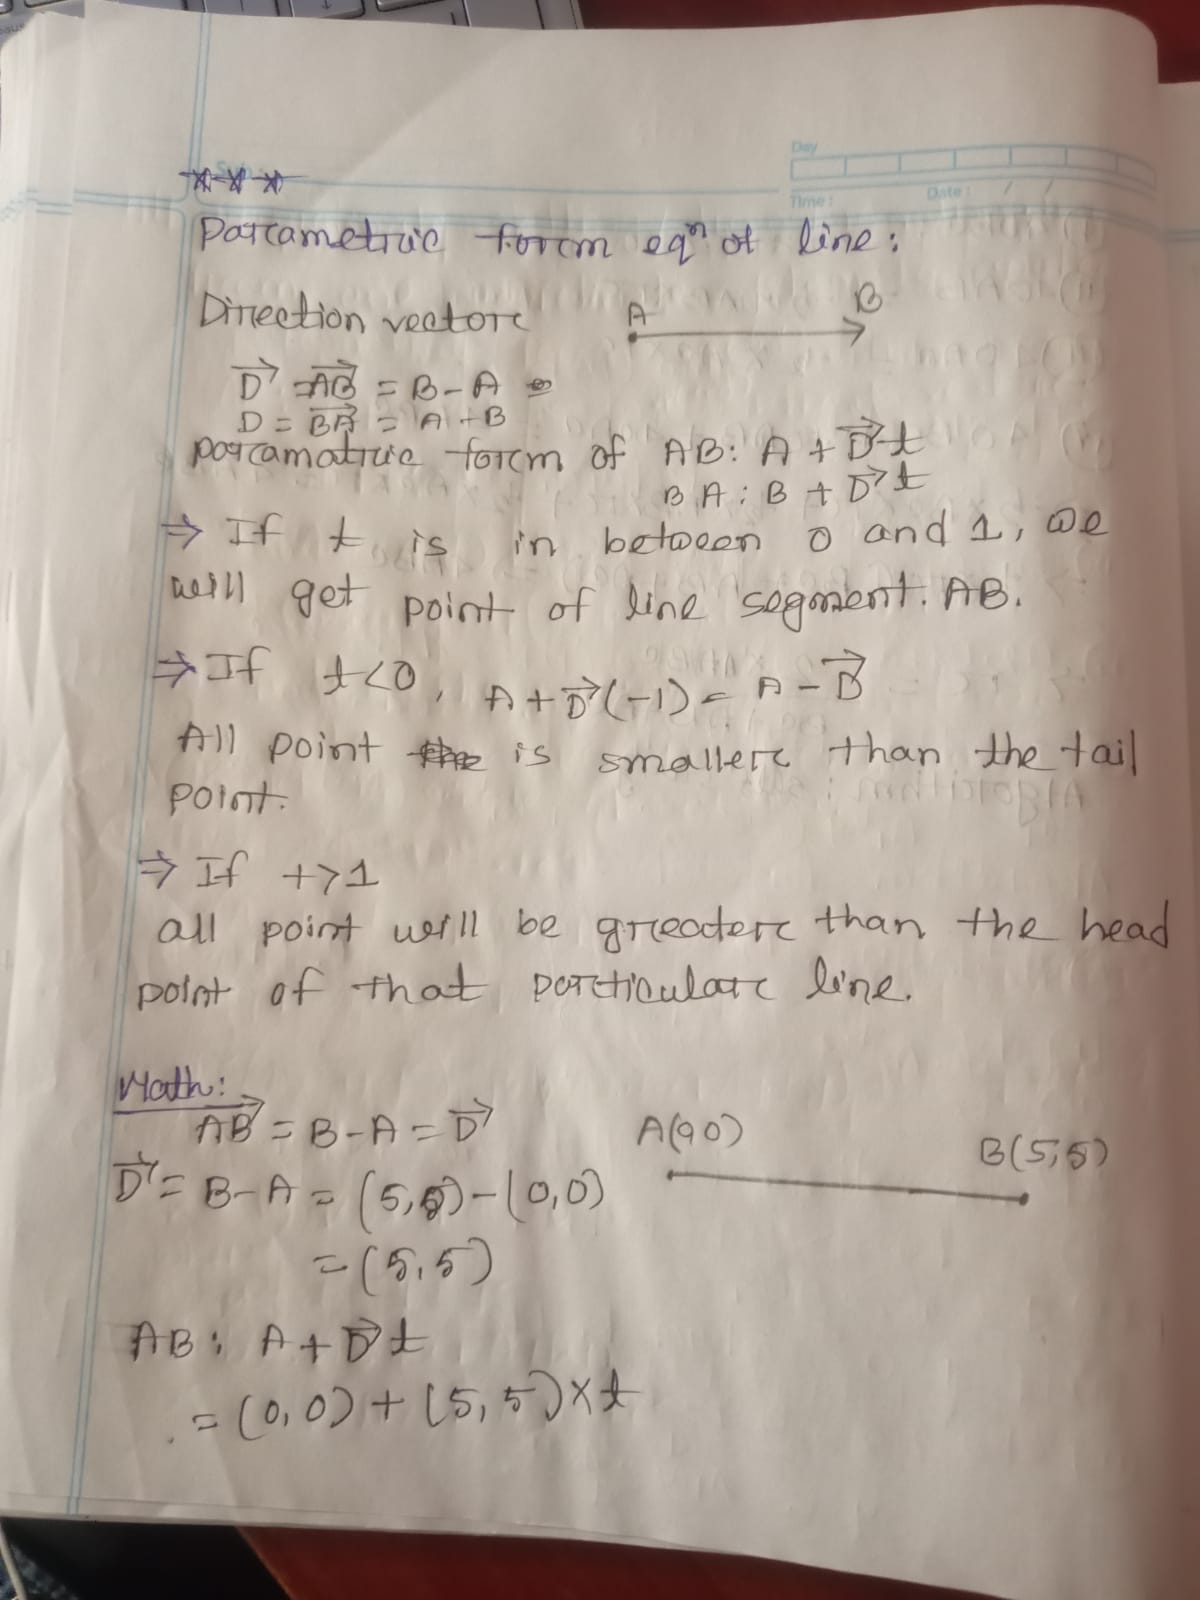 ***
Parametric form eqn of line:
Direction vector
A
B
D = AB = B - A
D = BA = A - B
parcamatric form of AB: A + D t
BA: B + D t
⇒ If t is in between 0 and 1, we
will get point of line segment. AB.
⇒ If t<0, A + D(-1) = A - D
All point is smaller than the tail
point.
⇒ If t>1
all point will be greater than the head
point of that particular line.
Math:
AB = B - A = D
A(0,0)
B(5,5)
D = B - A = (5,5) - (0,0)
= (5,5)
AB: A + D t
= (0,0) + (5,5) × t
Day
Time:
Date: / /